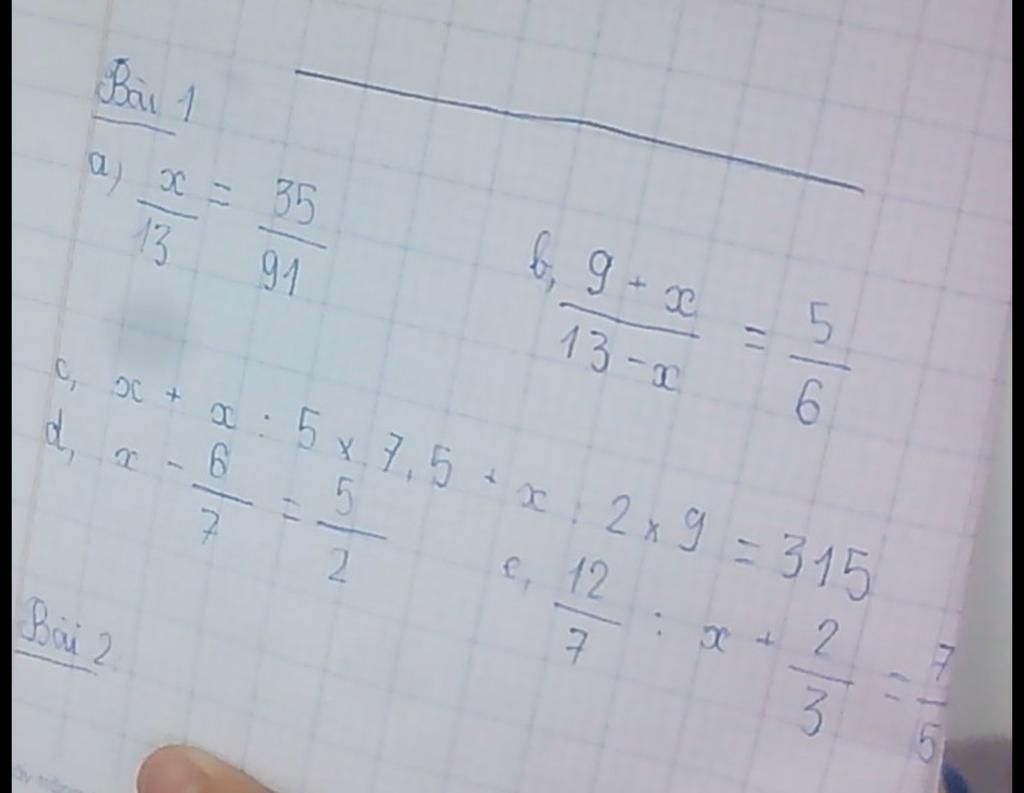 Bài 1
a) x/13 = 35/91
b, 9 + x / 13 - x = 5/6
c, x + x : 5 x 7,5 + x : 2 x 9 = 315
d, x - 6/7 = 5/2
e, 12/7 : x + 2/3 = 7/5
Bài 2